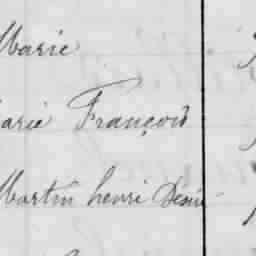 Marie
Marie François
Martin henri Denis